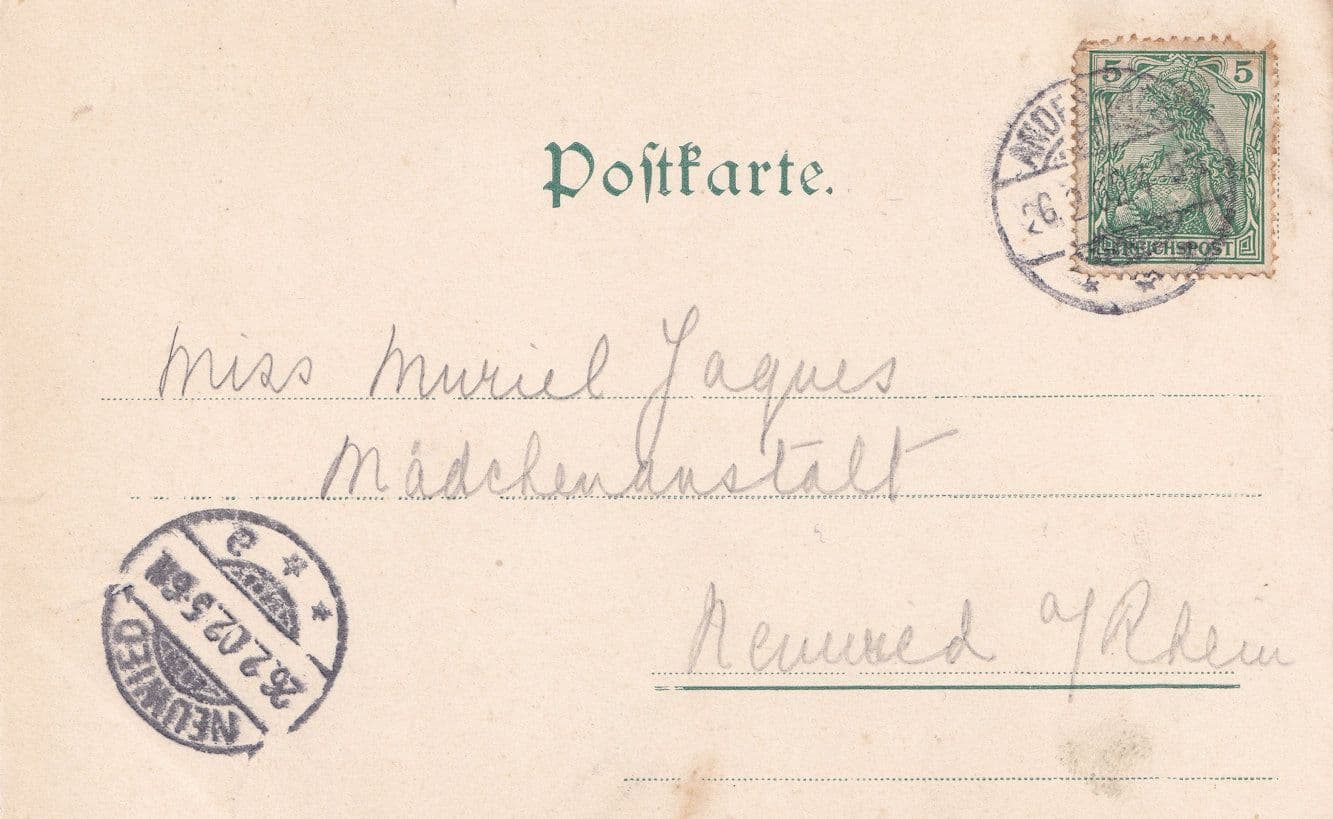 5 5
REICHSPOST
26.2.
Postkarte.
Miss Muriel Jaques
Mädchenanstalt
Neuwied a/Rhein
NEUWIED
26.2.02.5-6N
* * a